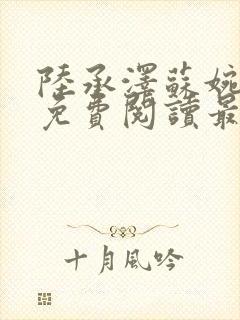 陸承澤蘇婉
免費閱讀最
十月風吟